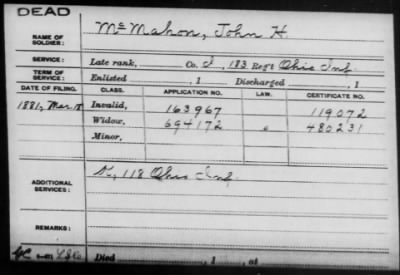 DEAD
NAME OF SOLDIER: McMahon, John H.
SERVICE: Late rank, Co. I, 183 Reg't Ohio Inf.
TERM OF SERVICE: Enlisted , 1 Discharged , 1
DATE OF FILING. CLASS. APPLICATION NO. LAW. CERTIFICATE NO.
1881, Mar. 18 Invalid, 163967 119072
Widow, 694172 480231
Minor,
ADDITIONAL SERVICES: K, 118 Ohio Inf.
REMARKS:
Died , 1 , at